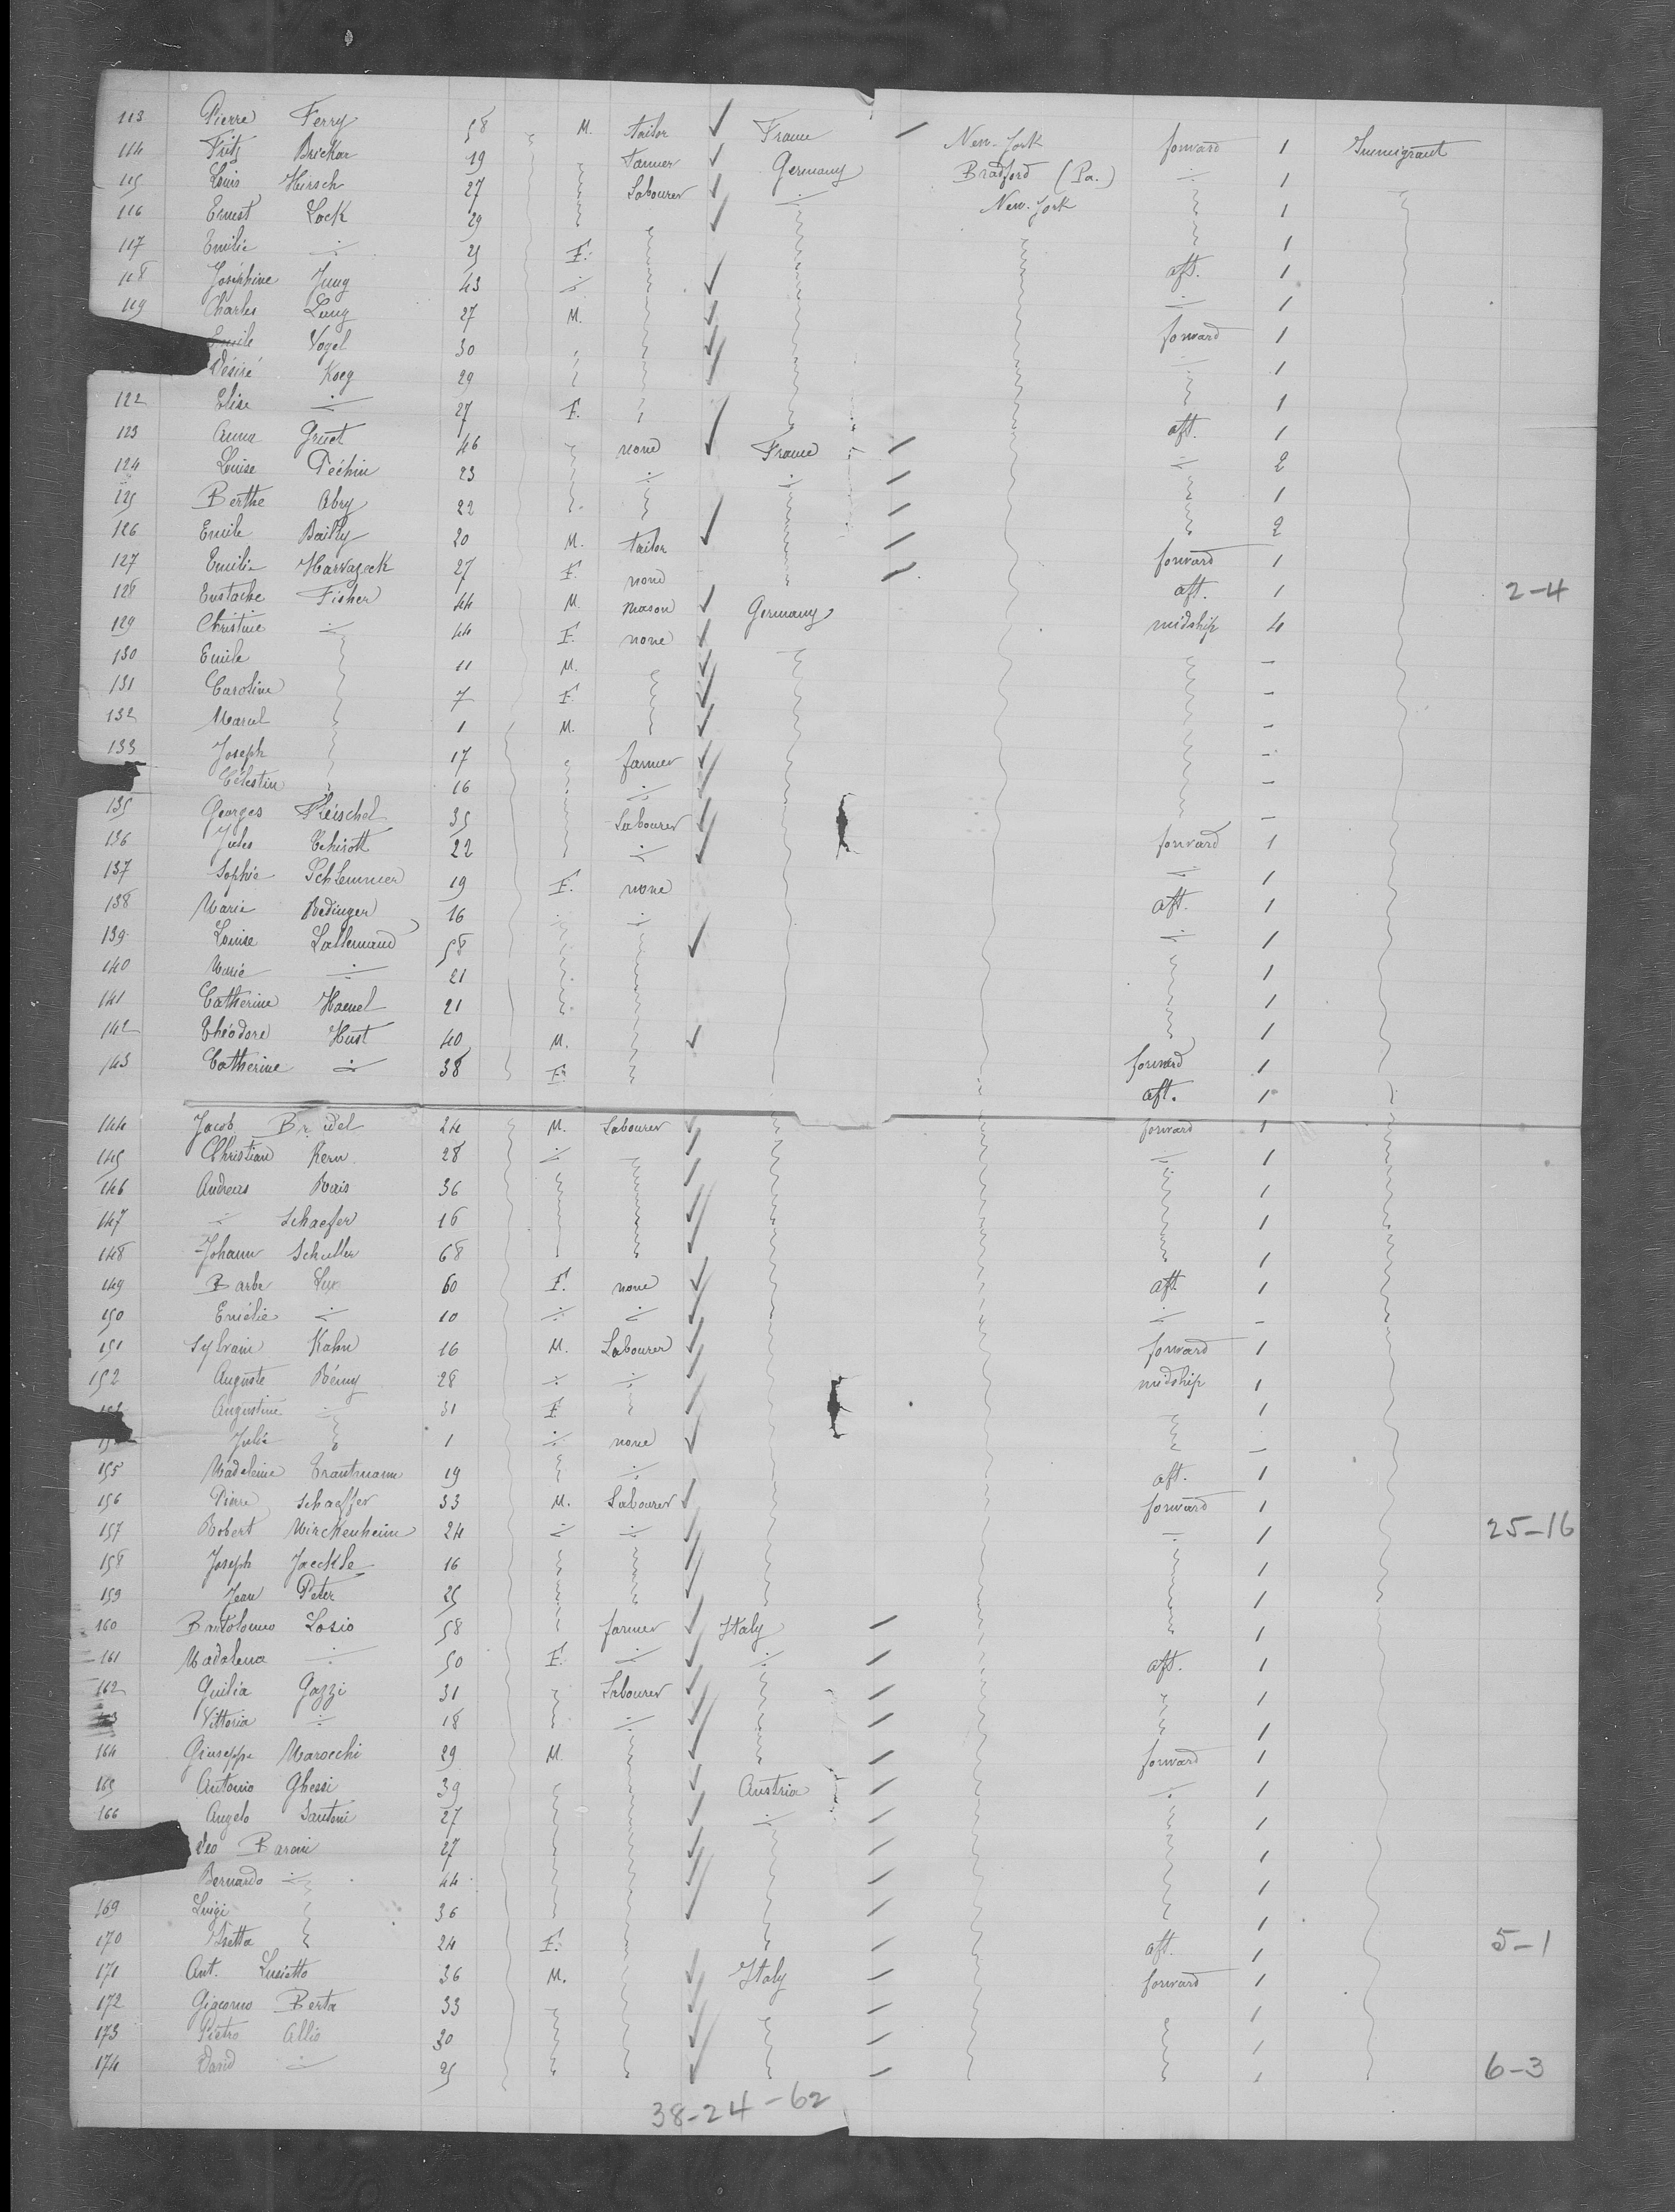 113 Pierre Ferry 58 M. tailor France New-York forward 1 Immigrant
114 Fritz Brickar 19 farmer Germany Bradford (Pa.) ÷ 1
115 Louis Hirsch 27 Labourer ÷ New-York 1
116 Ernest Lock 29 1
117 Emilie ÷ 25 F. aft. 1
118 Joséphine Jung 43 ÷ ÷ 1
119 Charles Lung 27 M. forward 1
Emile Vogel 30 1
Désiré Koeg 29 1
122 Elise ÷ 27 F. aft. 1
123 Anna Gruet 46 none France ÷ 2
124 Louise Péchin 23 ÷ ÷ 1
125 Berthe Abry 22 2
126 Emile Bailly 20 M. tailor forward 1
127 Emilie Harwazeck 27 F. none aft. 1
128 Eustache Fisher 44 M. Mason Germany midship 4 2-4
129 Christine ÷ 44 F. none -
130 Emile 11 M. -
131 Caroline 7 F. -
132 Marcel 1 M. -
133 Joseph 17 farmer -
Célestin 16 ÷ -
135 Georges Fleischel 35 Labourer forward 1
136 Jules 22 ÷ ÷ 1
137 Sophie Schlemmer 19 F. none aft. 1
138 Marie Bedinger 16 ÷ ÷ 1
139 Louise Lallemand 58 1
140 Marie ÷ 21 1
141 Catherine Haenel 21 1
142 Théodore Hust 40 M. forward 1
143 Catherine ÷ 38 F. aft. 1
144 Jacob 24 M. Labourer forward 1
145 Christian Kern 28 ÷ ÷ 1
146 Andreas Rais 36 1
147 ÷ Schaefer 16 1
148 Johann Schuller 68 1
149 Barbe Lux 60 F. none aft 1
150 Emélie ÷ 10 ÷ ÷ ÷ -
151 Sylvain Kahn 16 M. Labourer forward 1
152 Auguste Rémy 28 ÷ ÷ midship 1
Augustine ÷ 31 F 1
Julie 1 ÷ none -
155 Madeleine Trautmann 19 ÷ aft. 1
156 Pierre Schaeffer 33 M. Labourer forward 1
157 Robert Wirckenheim 24 ÷ ÷ ÷ 1 25-16
158 Joseph Jaeckle 16 1
159 Jean Peter 25 1
160 Bartolomeo Losio 58 farmer Italy 1
161 Madalena ÷ 50 F. ÷ ÷ aft. 1
162 Guilia Gazzi 31 Labourer 1
Vittoria ÷ 18 ÷ 1
164 Giuseppe Marocchi 29 M. forward 1
165 Antonio Ghessi 39 Austria ÷ 1
166 Angelo Santoni 27 ÷ 1
deo Baroni 27 1
Bernardo ÷ 44 1
169 Luigi 36 1
170 24 F. aft. 1 5-1
171 Ant. Lusietto 36 M. Italy forward 1
172 Giacomo Berta 33 1
173 Pietro Allio 30 1
174 David ÷ 25 1 6-3
38-24-62